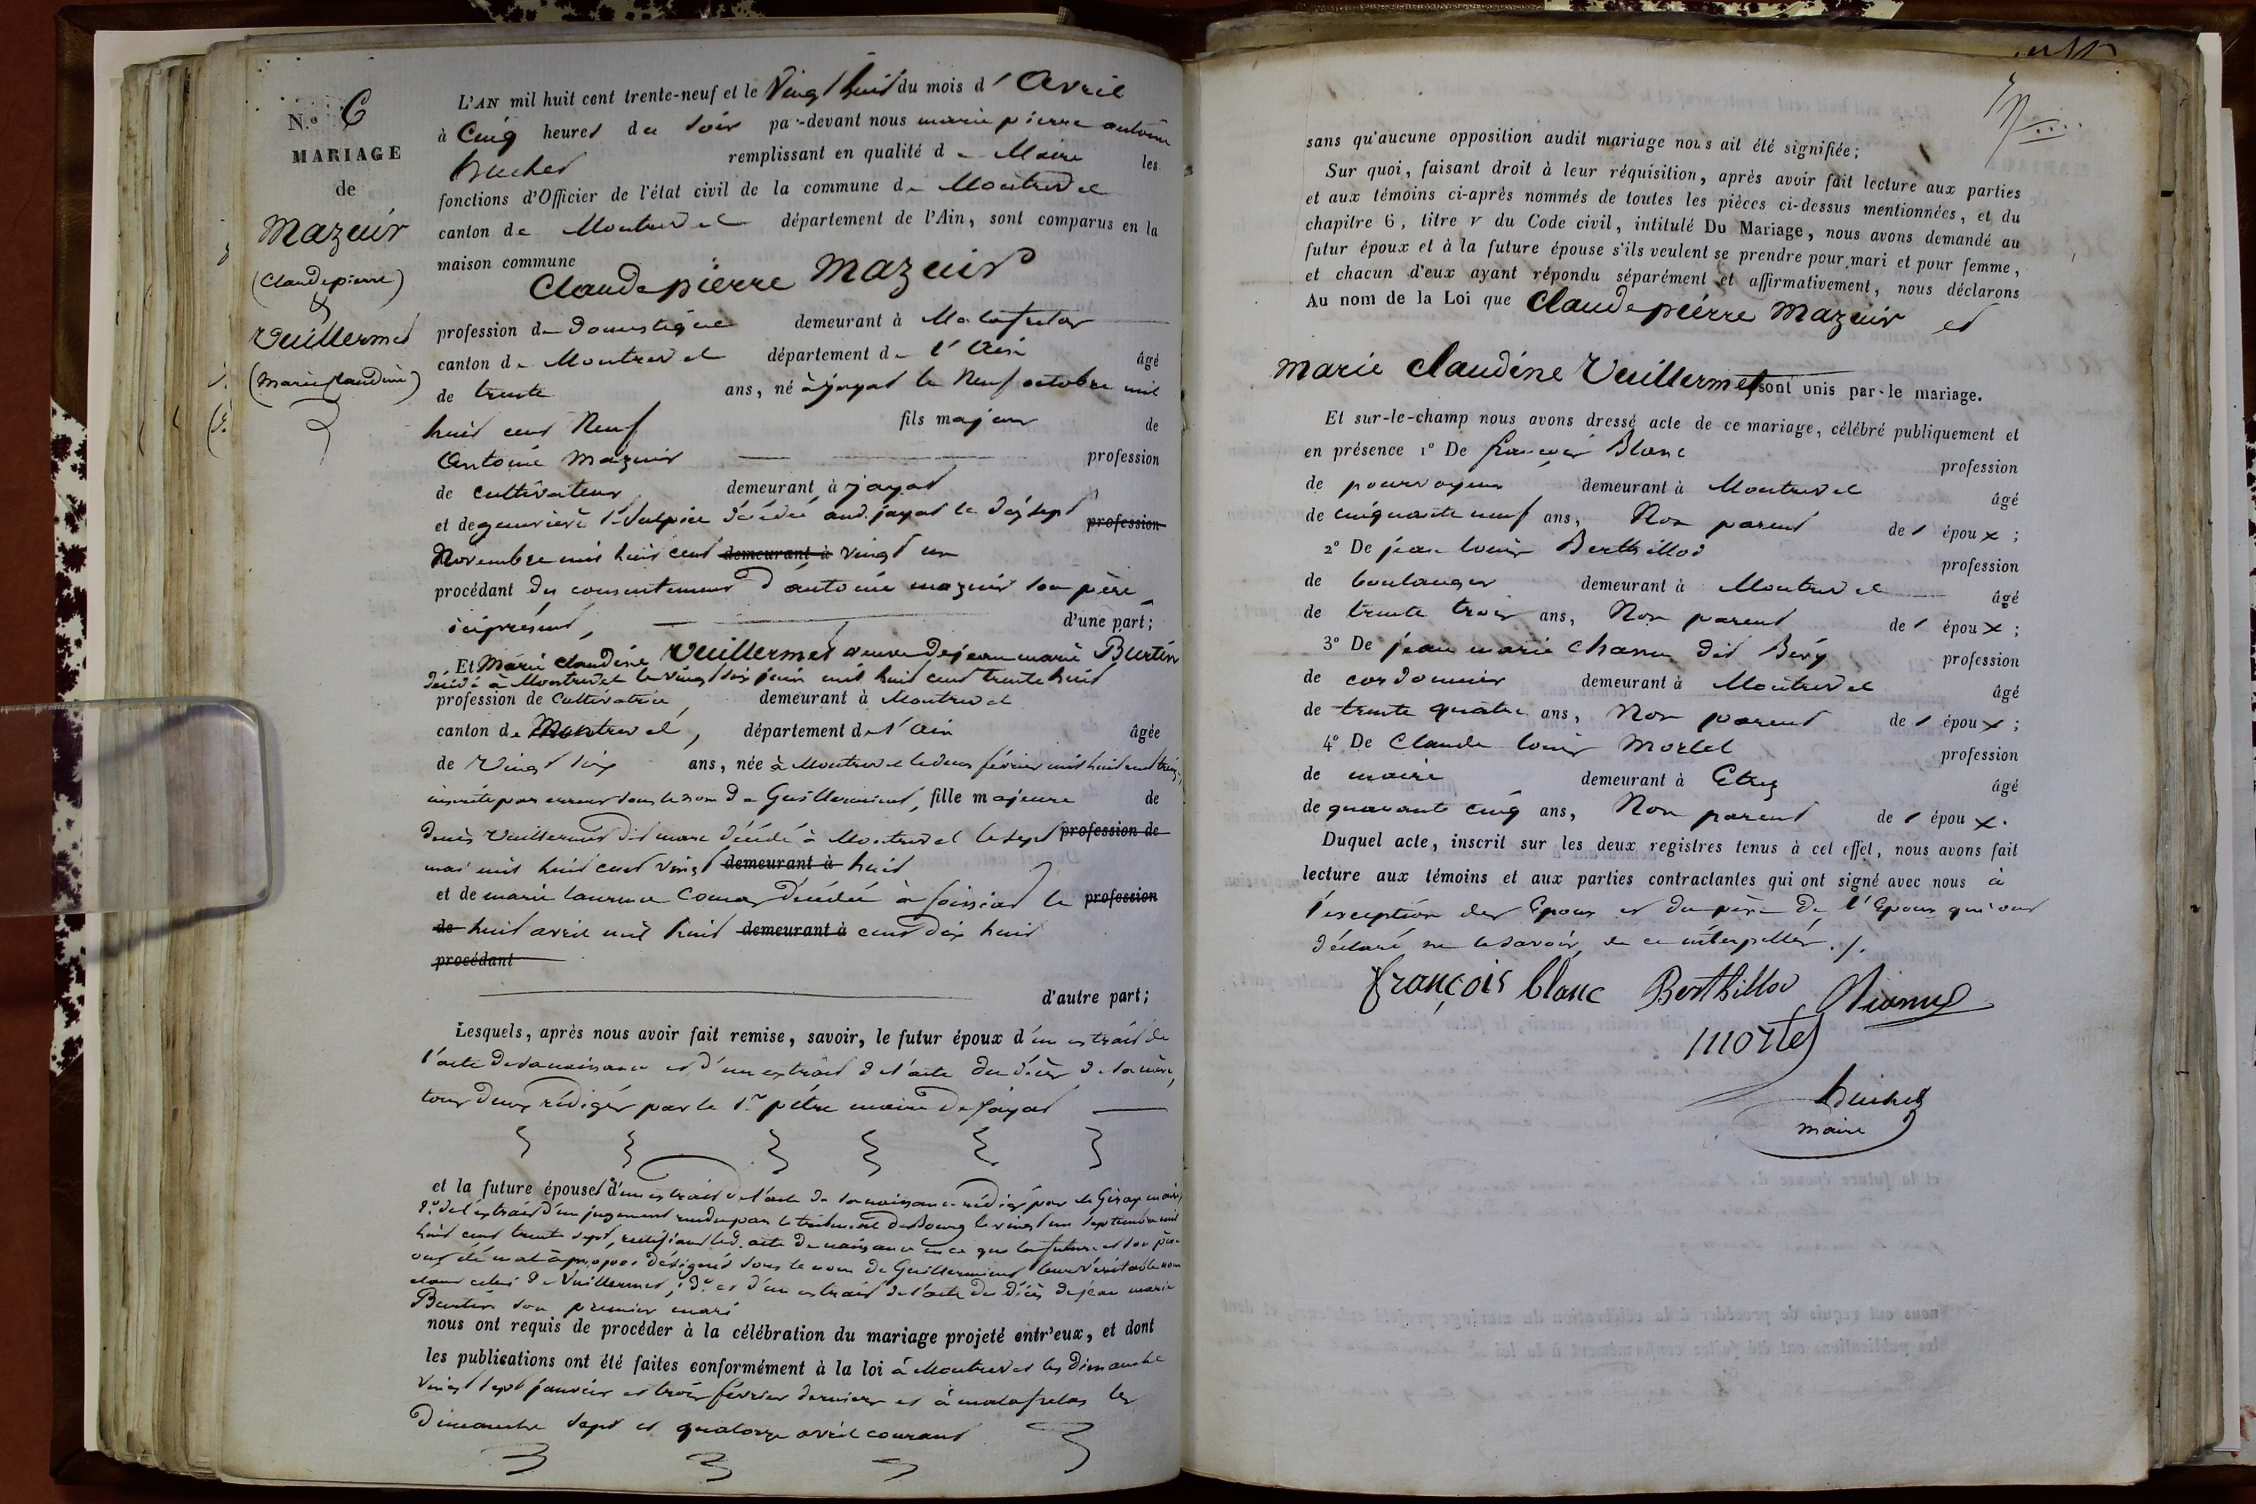 N.° 6
MARIAGE
de
Mazuir
(Claude pierre)
&
Vuillermet
(Marie Claudine)
L'AN mil huit cent trente-neuf et le Vingt huit du mois d' Avril
à Cinq heures du soir par-devant nous marie pierre antoine
buchet remplissant en qualité de Maire les
fonctions d'Officier de l'état civil de la commune de Montrevel
canton de Montrevel département de l'Ain, sont comparus en la
maison commune
Claude pierre Mazuir
profession de Domestique demeurant à Malafretas
canton de Montrevel département de l'Ain âgé
de trente ans, né à jayat le Neuf octobre mil
huit cent Neuf fils majeur de
Antoine Mazuir profession
de cultivateur demeurant à jayat
et de genevieve St. Sulpice décédée aud. jayat le dix sept profession
Novembre mil huit cent demeurant à vingt un
procédant du consentement d'antoine mazuir son père
ici présent, d'une part;
Et Marie Claudine Vuillermet veuve de jean marie Burtin
décédé à Montrevel le vingt six juin mil huit cent trente huit
profession de Cultivatrice, demeurant à Montrevel
canton de Montrevel, département de l'ain âgée
de Vingt six ans, née à Montrevel le deux février mil huit cent treize,
inscrite par erreur sous le nom de Guillerminet, fille majeure de
denis Vuillermet dit marc décédé à Montrevel le sept profession de
mai mil huit cent vingt demeurant à huit
et de marie laurence Comas décédée à foissiat le profession
de huit avril mil huit demeurant à cent dix huit
procédant
d'autre part;
Lesquels, après nous avoir fait remise, savoir, le futur époux d'un extrait de
l'acte de sa naissance et d'un extrait de l'acte du décès de sa mère,
tous deux rédigés par le Sr. pêtre maire de Jayat
et la future épouse 1° d'un extrait de l'acte de sa naissance rédigé par Mr Girax maire,
2° de l'extrait d'un jugement rendu par le tribunal de Bourg le vingt un septembre mil
huit cent trente sept, rectifiant led. acte de naissance en ce que la future et son père
ont été mal à propos désignés sous le nom de Guillerminet leur véritable nom
étant celui de Vuillermet, 3° et d'un extrait de l'acte du décès de jean marie
Burtin son premier mari
nous ont requis de procéder à la célébration du mariage projeté entr'eux, et dont
les publications ont été faites conformément à la loi à Montrevel les dimanche
vingt sept janvier et trois février derniers et à malafretas les
dimanche sept et quatorze avril courant
sans qu'aucune opposition audit mariage nous ait été signifiée;
Sur quoi, faisant droit à leur réquisition, après avoir fait lecture aux parties
et aux témoins ci-après nommés de toutes les pièces ci-dessus mentionnées, et du
chapitre 6, titre v du Code civil, intitulé Du Mariage, nous avons demandé au
futur époux et à la future épouse s'ils veulent se prendre pour mari et pour femme,
et chacun d'eux ayant répondu séparément et affirmativement, nous déclarons
Au nom de la Loi que Claude pierre Mazuir et
Marie Claudine Vuillermet sont unis par le mariage.
Et sur-le-champ nous avons dressé acte de ce mariage, célébré publiquement et
en présence 1° De françois Blanc profession
de pourvoyeur demeurant à Montrevel âgé
de cinquante neuf ans, Non parent de l'époux;
2° De jean louis Berthillot profession
de boulanger demeurant à Montrevel âgé
de trente trois ans, Non parent de l'époux;
3° De jean marie Chanu dit Bévy profession
de cordonnier demeurant à Montrevel âgé
de trente quatre ans, Non parent de l'époux;
4° De Claude louis Mortel profession
de maire demeurant à Etrez âgé
de quarante cinq ans, Non parent de l'époux.
Duquel acte, inscrit sur les deux registres tenus à cet effet, nous avons fait
lecture aux témoins et aux parties contractantes qui ont signé avec nous à
l'exception des Epoux et du père de l'Epoux qui ont
déclaré ne le savoir, de ce interpellés ./.
françois blanc Berthillot
Mortel
buchet
maire